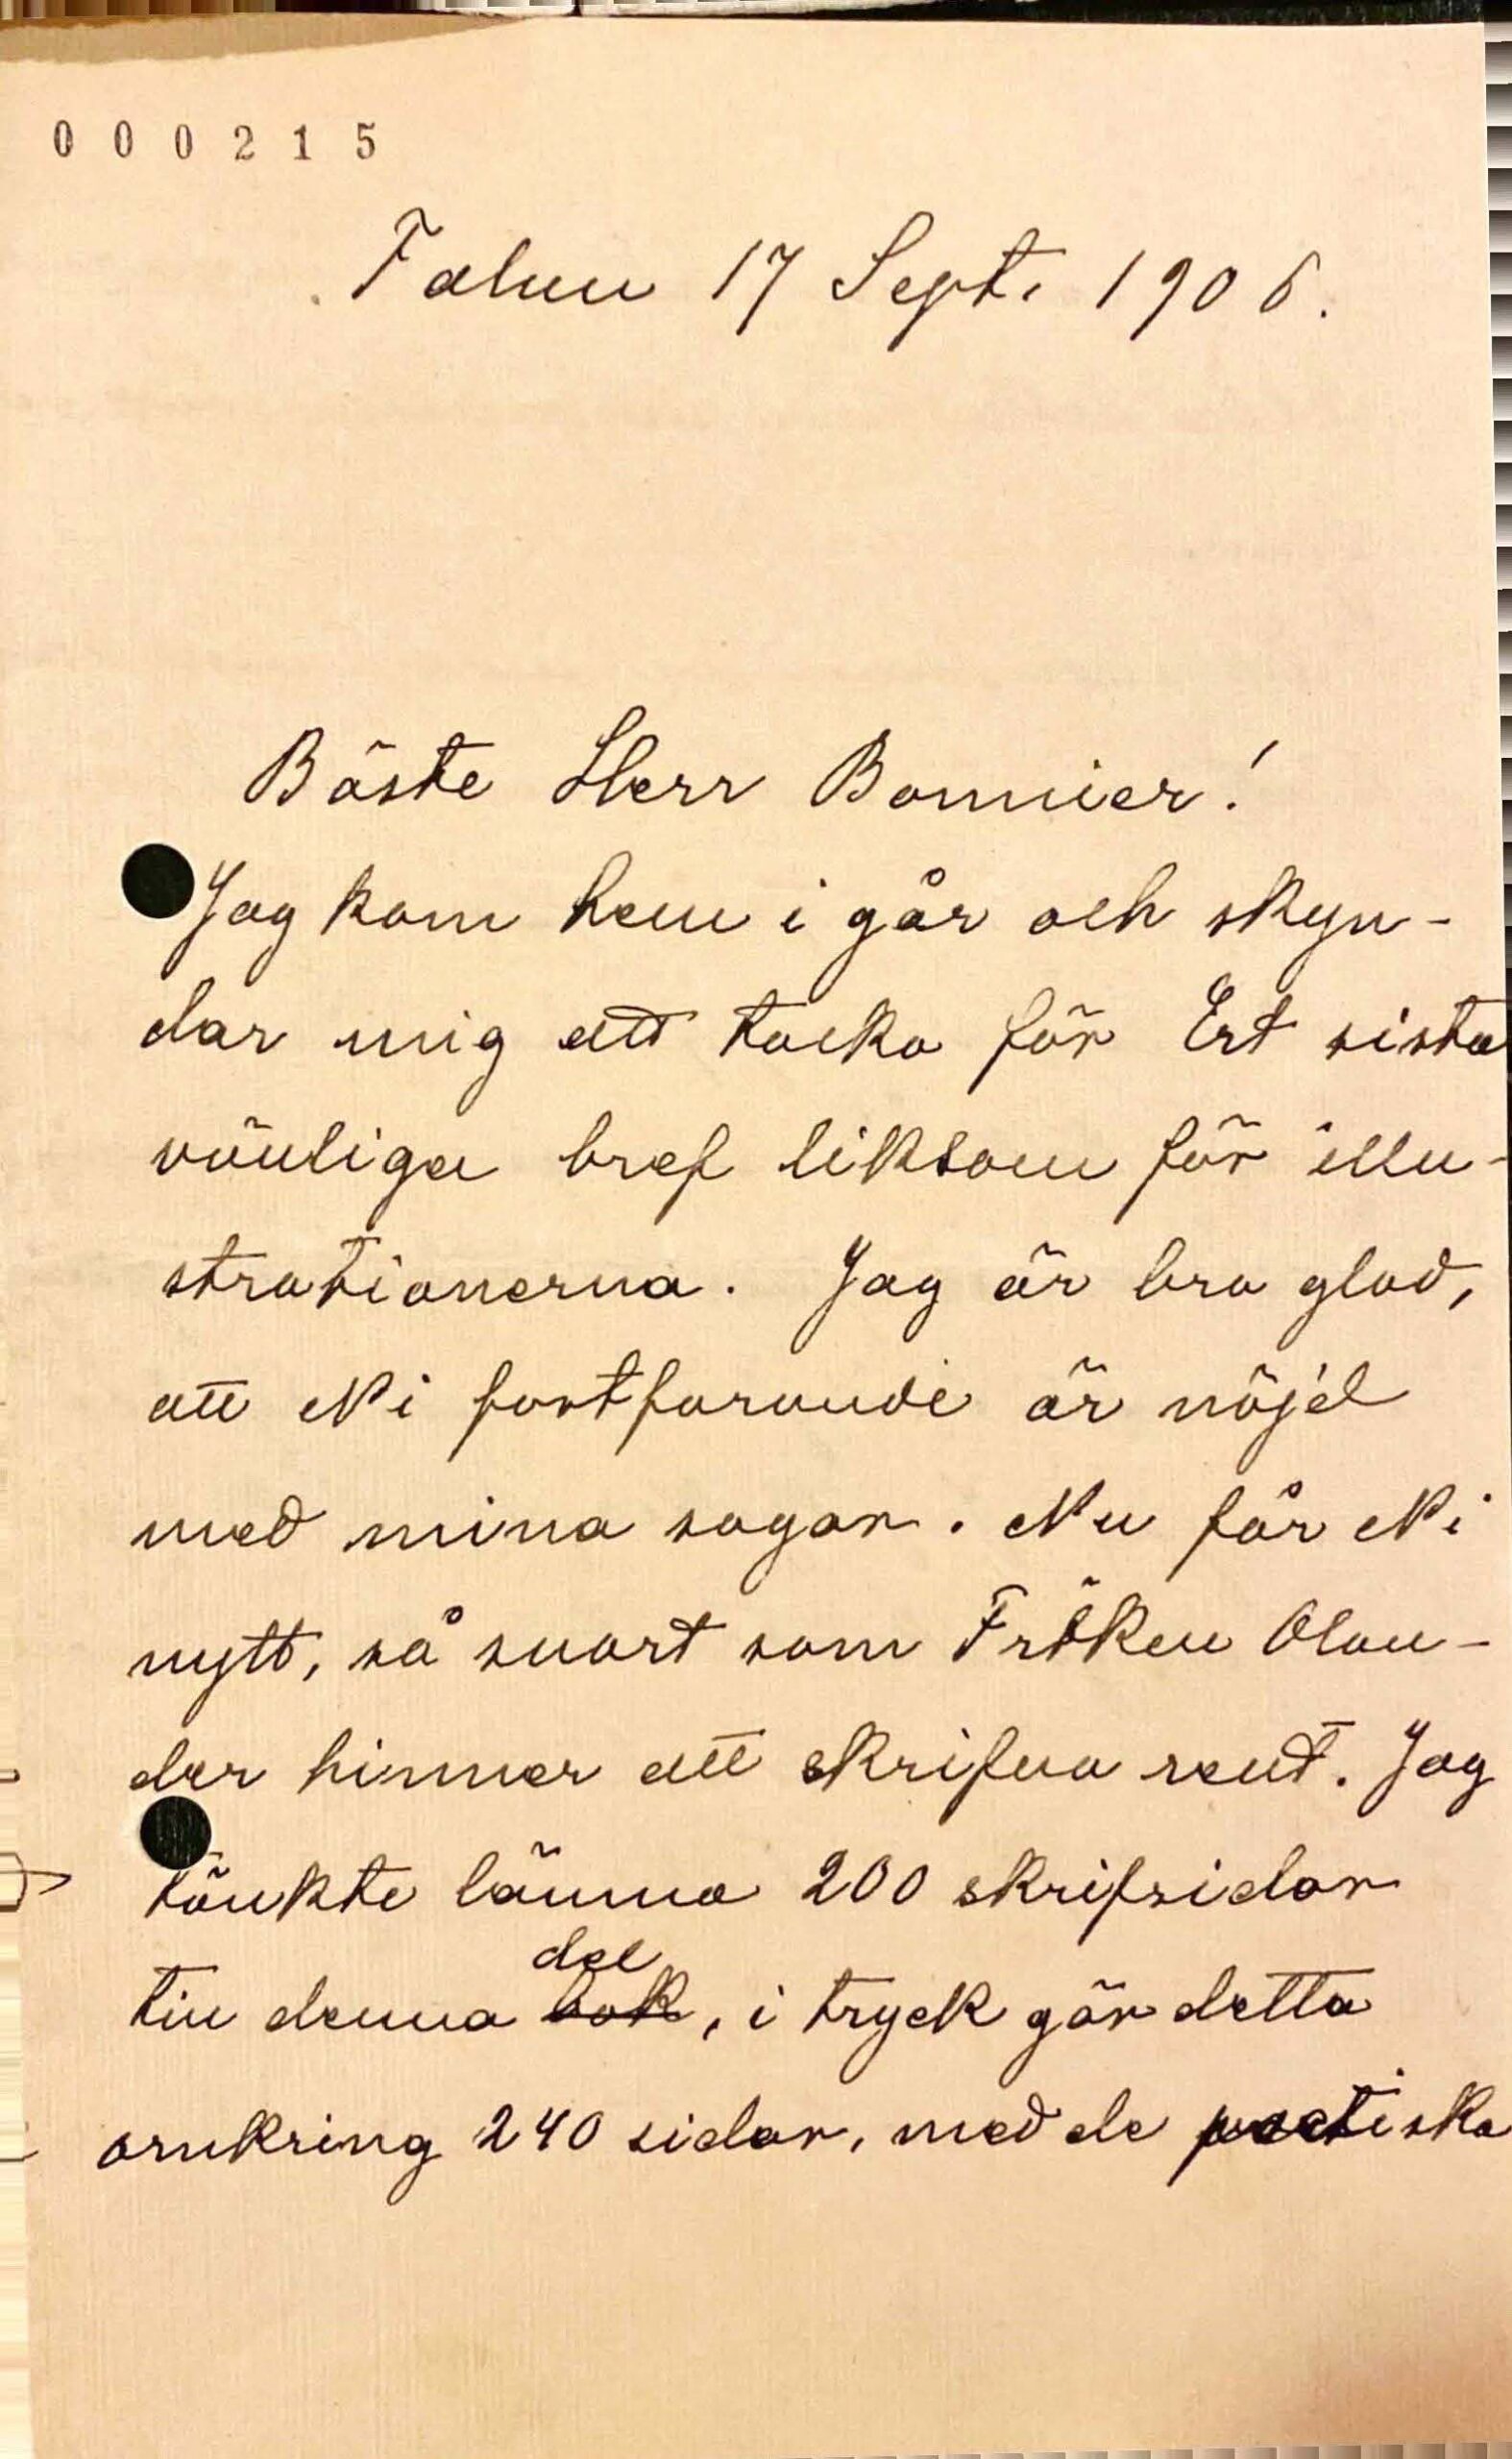 000215
Falun 17 Sept. 1906.
Bäste Herr Bonnier!
Jag kom hem i går och skyn-
dar mig att tacka för Ert sista
vänliga bref liksom för illu-
strationerna. Jag är bra glad,
att Ni fortfarande är nöjd
med mina sagor. Nu får Ni
nytt, så snart som Fröken Olan-
der hinner att skrifva rent. Jag
tänkte lämna 200 skrifsidor
del
till denna bok, i tryck gör detta
omkring 240 sidor, med de poetiska